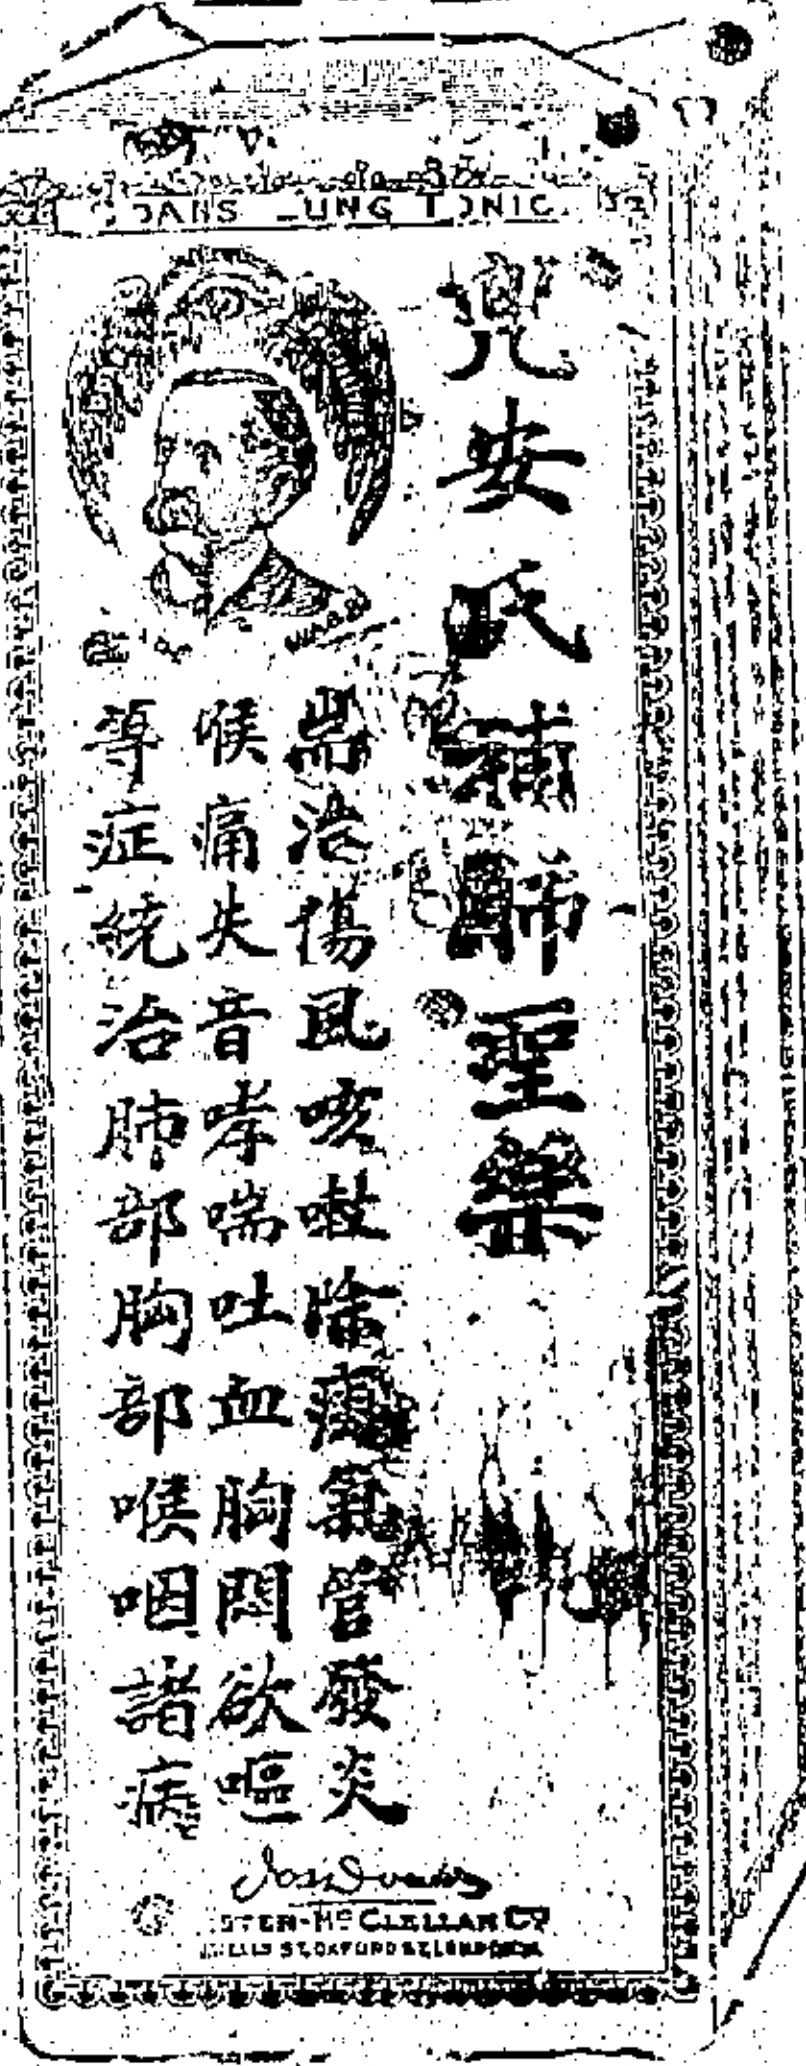 DOANS LUNG TONIC
兜安氏補肺聖藥
耑治傷風咳嗽除痰氣管發炎
喉痛失音哮喘吐血胸悶欲嘔
等症統治肺部胸部喉咽諸病
STER-Mc CLELLAN Co
ST. OXFORD ST. LONDON